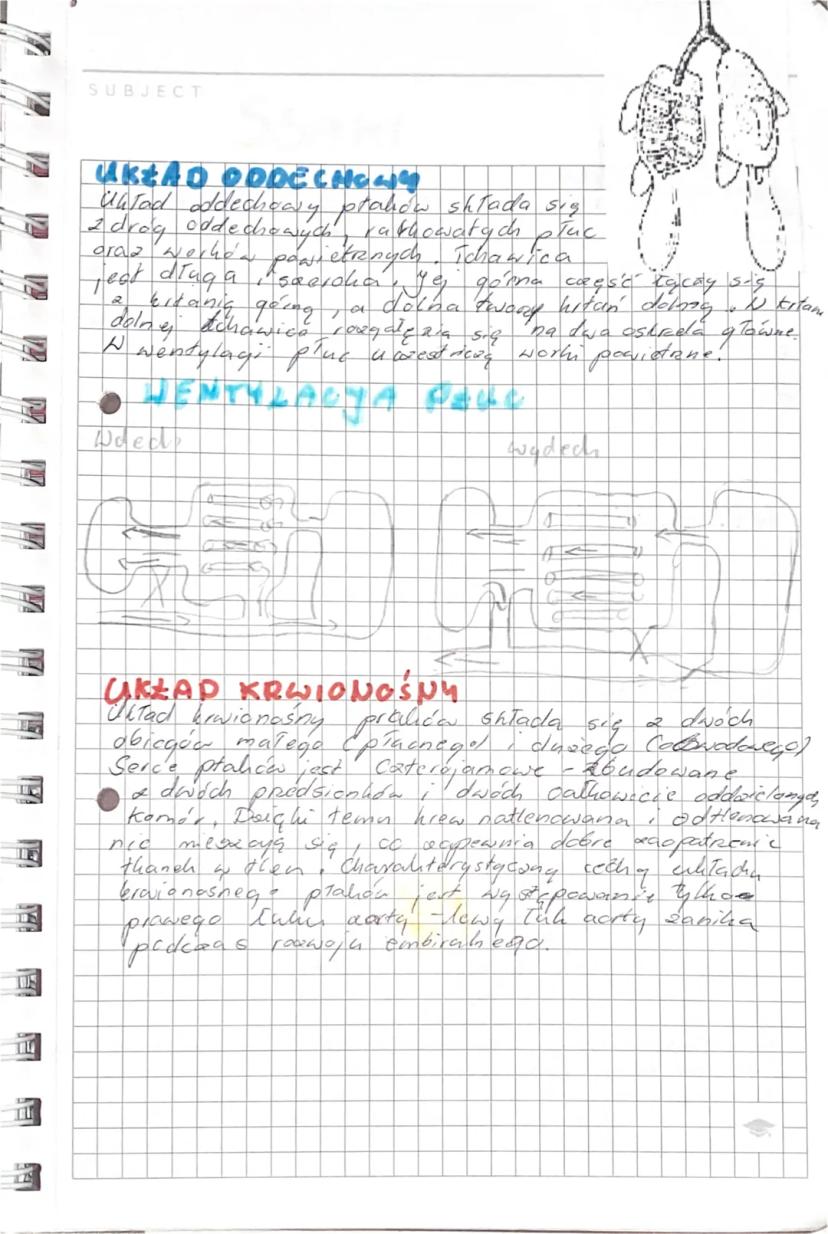 SUBJECT
UKŁAD ODDECHOWY
Układ oddechowy ptaków składa się
z dróg oddechowych, rurkowatych płuc
oraz worków powietrznych. Tchawica
jest długa i szeroka. Jej górna część łączy się
z krtanią górną, a dolna tworzy krtań dolną. W krtani
dolnej tchawica rozgałęzia się na dwa oskrzela główne.
W wentylacji płuc uczestniczą worki powietrzne.
WENTYLACJA PŁUC
Wdech
wydech
UKŁAD KRWIONOŚNY
Układ krwionośny ptaków składa się z dwóch
obiegów małego (płucnego) i dużego (obwodowego)
Serce ptaków jest czterojamowe - zbudowane
z dwóch przedsionków i dwóch całkowicie oddzielonych
komór. Dzięki temu krew natlenowana i odtlenowana
nie mieszają się, co zapewnia dobre zaopatrzenie
tkanek w tlen. Charakterystyczną cechą układu
krwionośnego ptaków jest występowanie tylko
prawego łuku aorty - lewy łuk aorty zanika
podczas rozwoju